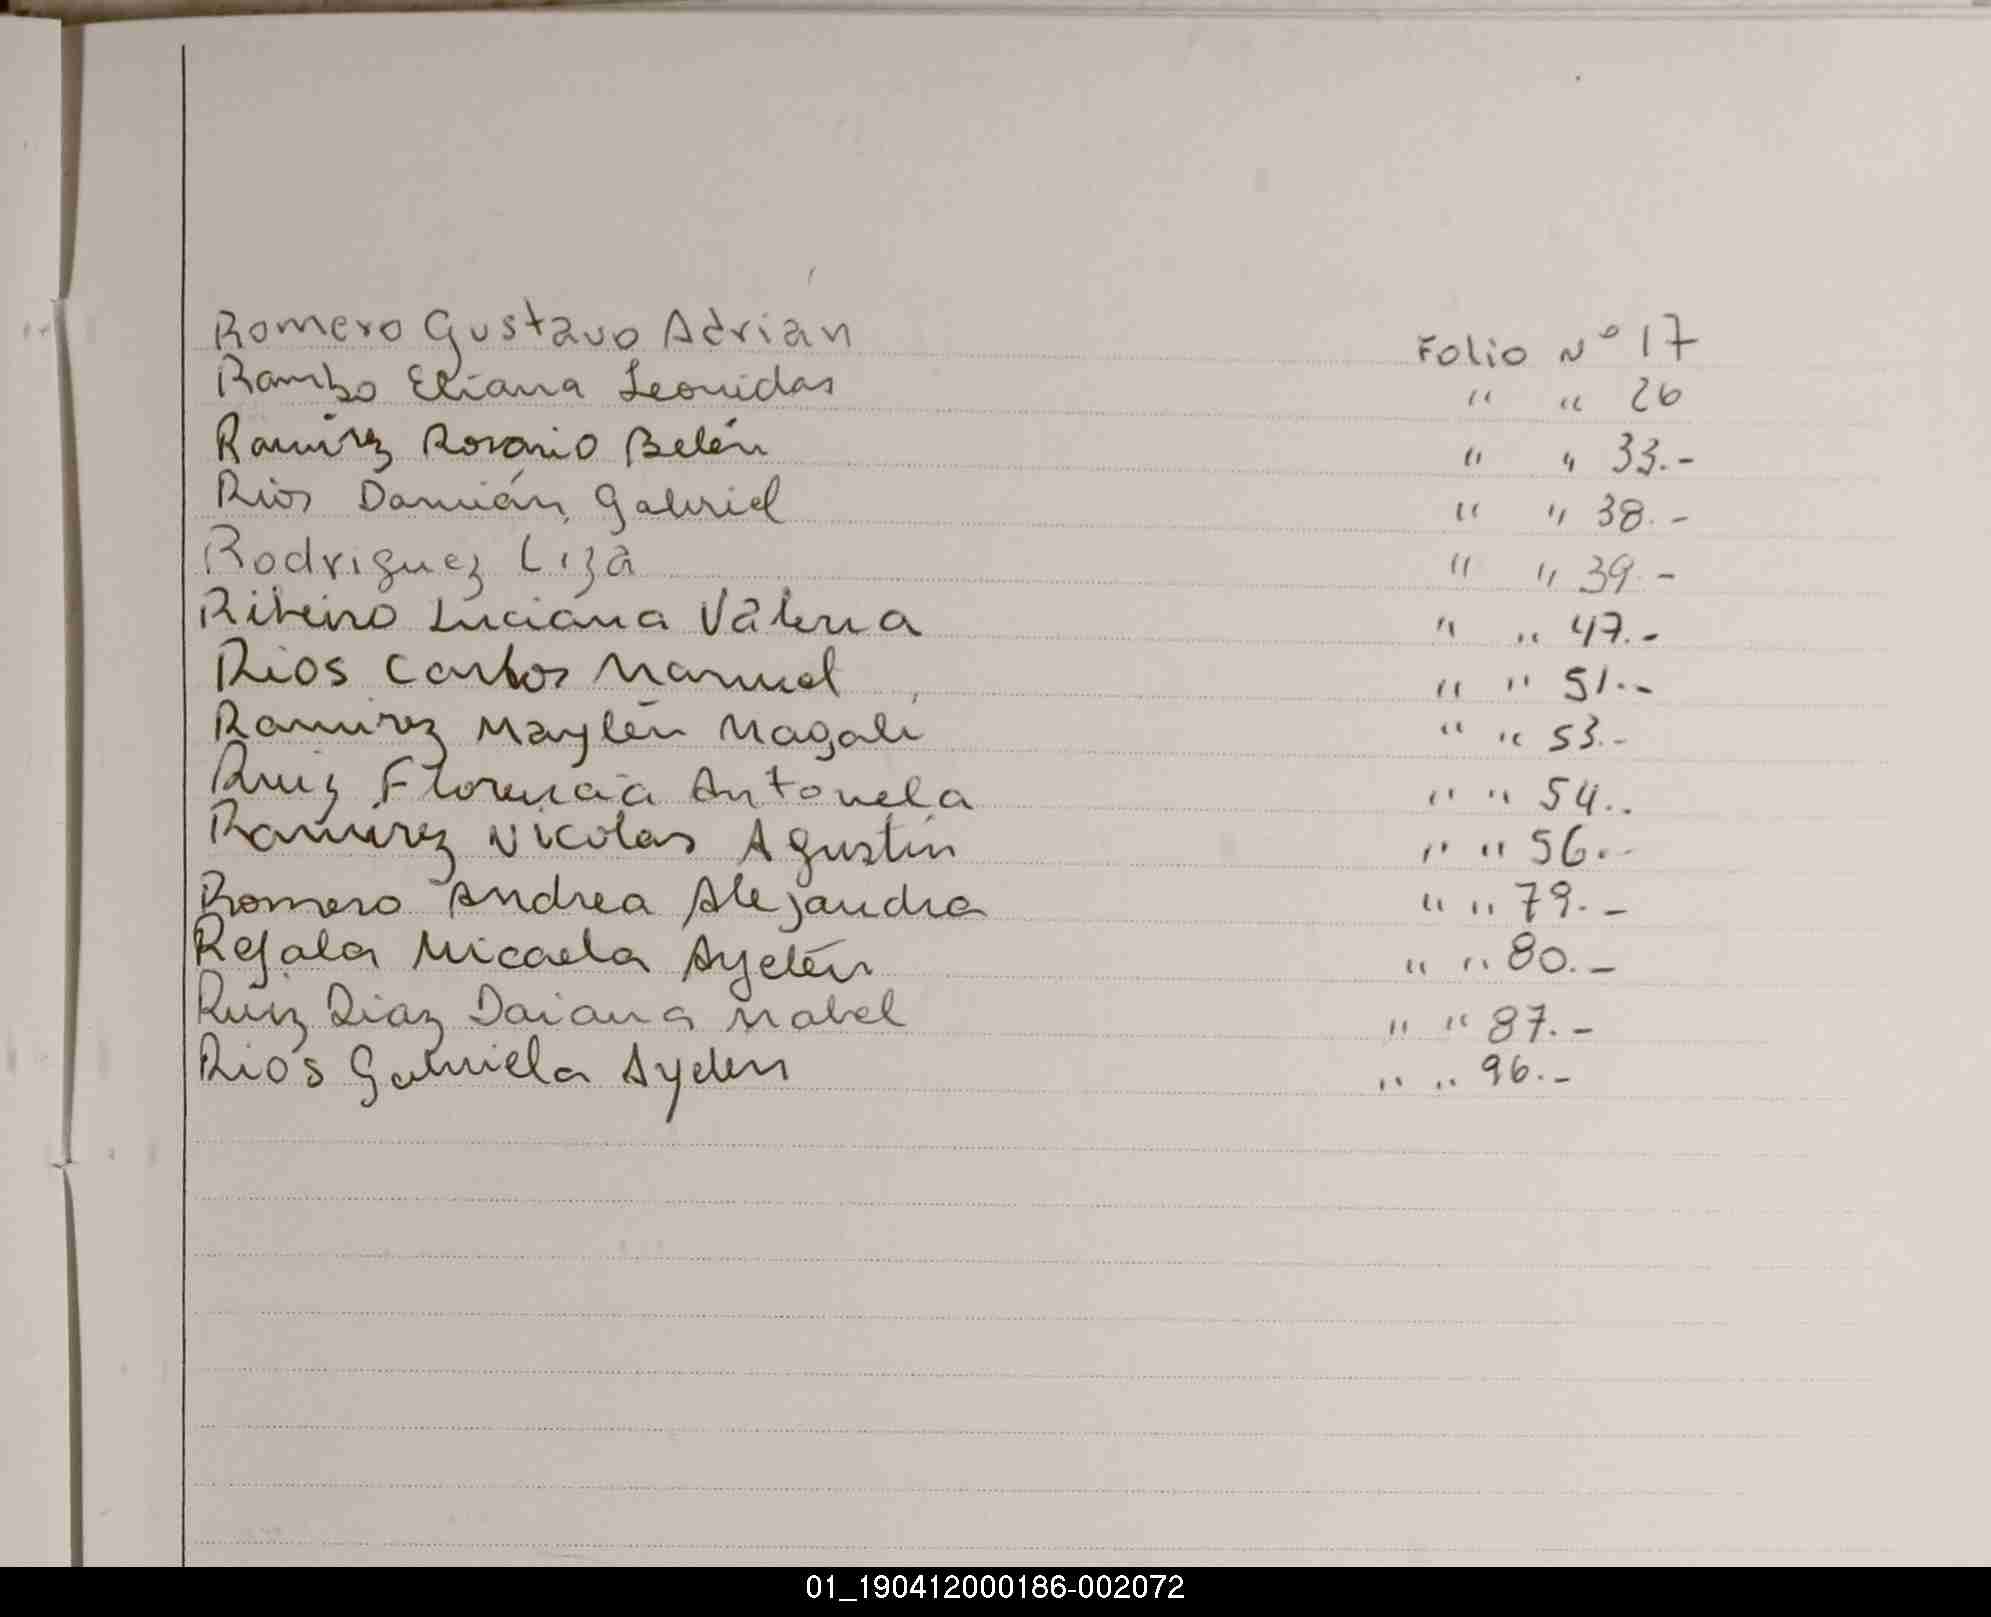 Romero Gustavo Adrián Folio Nº 17
Rambo Eliana Leonidas " " 26
Ramírez Rosario Belén " " 33.-
Rios Damián Gabriel " " 38.-
Rodriguez Liza " " 39.-
Ribeiro Luciana Valeria " " 47.-
Rios Carlos Manuel " " 51.-
Ramirez Maylén Magalí " " 53.-
Ruiz Florencia Antonela " " 54.-
Ramirez Nicolas Agustín " " 56.-
Romero Andrea Alejandra " " 79.-
Rejala Micaela Ayelén " " 80.-
Ruiz Diaz Daiana Mabel " " 87.-
Rios Gabriela Ayelen " " 96.-
01_190412000186-002072